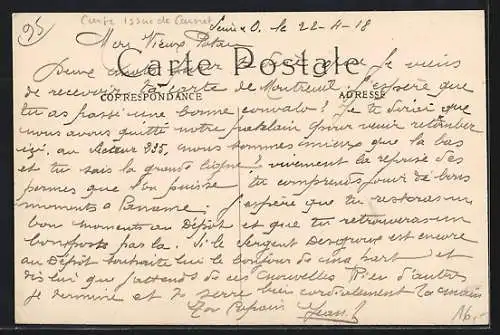 95 Carte issue de Carnet
Seine & O. le 22-4-18
Mon Vieux Poteau
Carte Postale
CORRESPONDANCE ADRESSE
Deux mots pour te dire que je viens
de recevoir ta carte de Montreuil. J'espère que
tu as passé une bonne convalo? Je te dirai que
nous avons quitté notre patelin pour venir retomber
ici. au Secteur 235, nous sommes mieux que la bas
et tu sais la grande ligne! vivement la reprise des
permes que l'on puisse tu comprends jouir de bons
moments a Paname; j'espère que tu resteras un
bon moments au Dépôt et que tu retrouveras un
bon poste par la. Si le Sergent est encore
au Dépôt souhaite lui le bonjour de ma part et
dis lui que j'attends de ses nouvelles. Rien d'autres
je termine et te serre bien cordialement la main
Ton Copain Jean
16.-